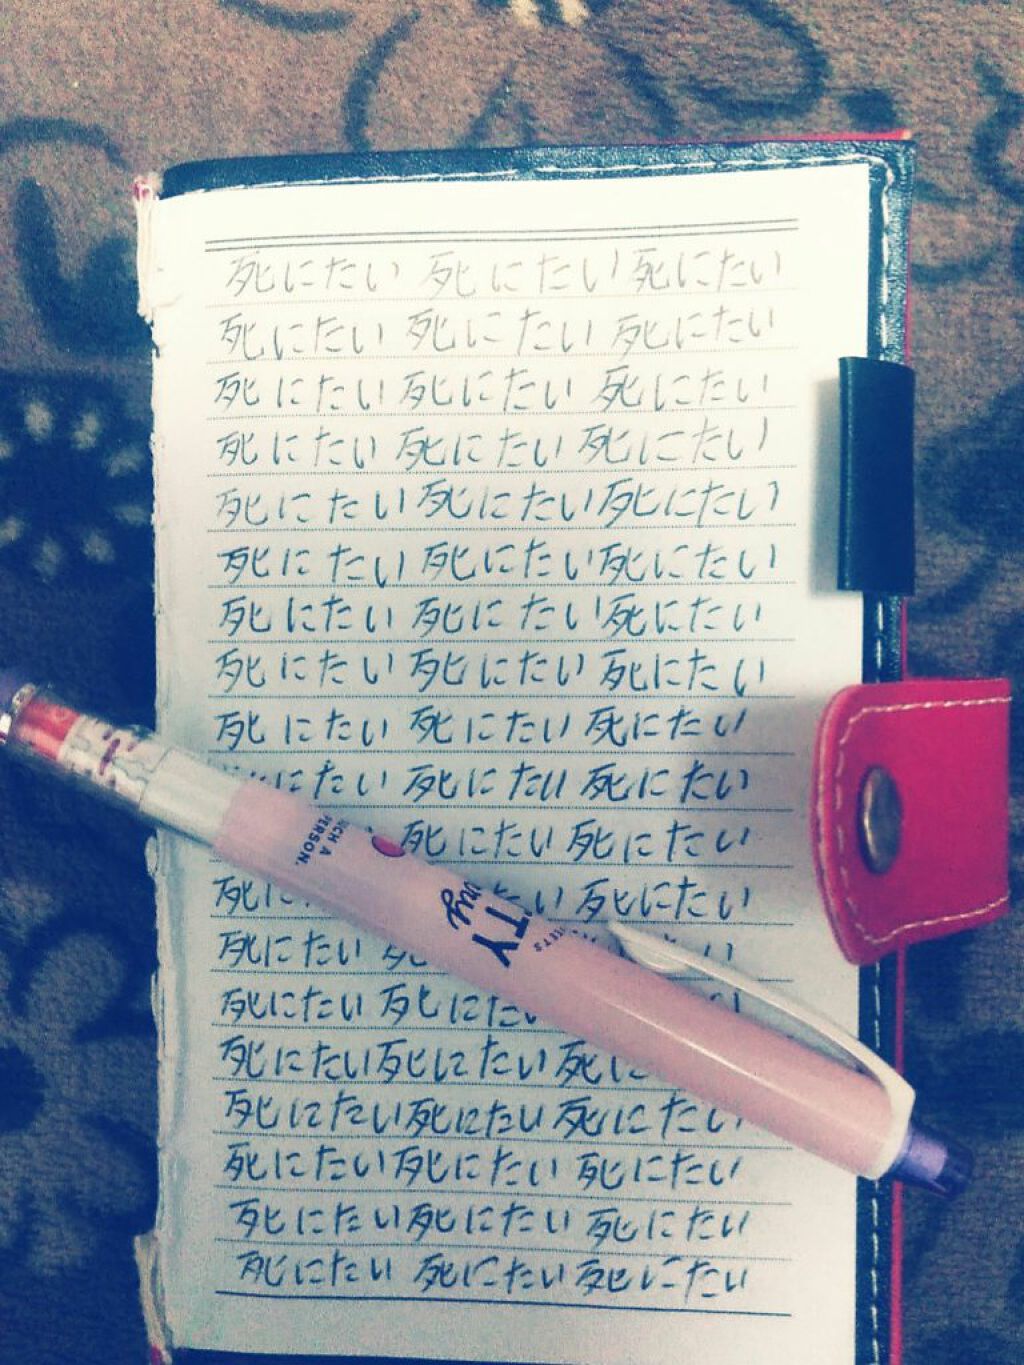 死にたい 死にたい 死にたい
死にたい 死にたい 死にたい
死にたい 死にたい 死にたい
死にたい 死にたい 死にたい
死にたい 死にたい 死にたい
死にたい 死にたい 死にたい
死にたい 死にたい 死にたい
死にたい 死にたい 死にたい
死にたい 死にたい 死にたい
にたい 死にたい 死にたい
死にたい 死にたい
死に い 死にたい
死にたい 死 い
死にたい 死にた
死にたい 死にたい 死に
死にたい 死にたい 死にたい
死にたい 死にたい 死にたい
死にたい 死にたい 死にたい
死にたい 死にたい 死にたい
UCH A
PERSON.
TTY